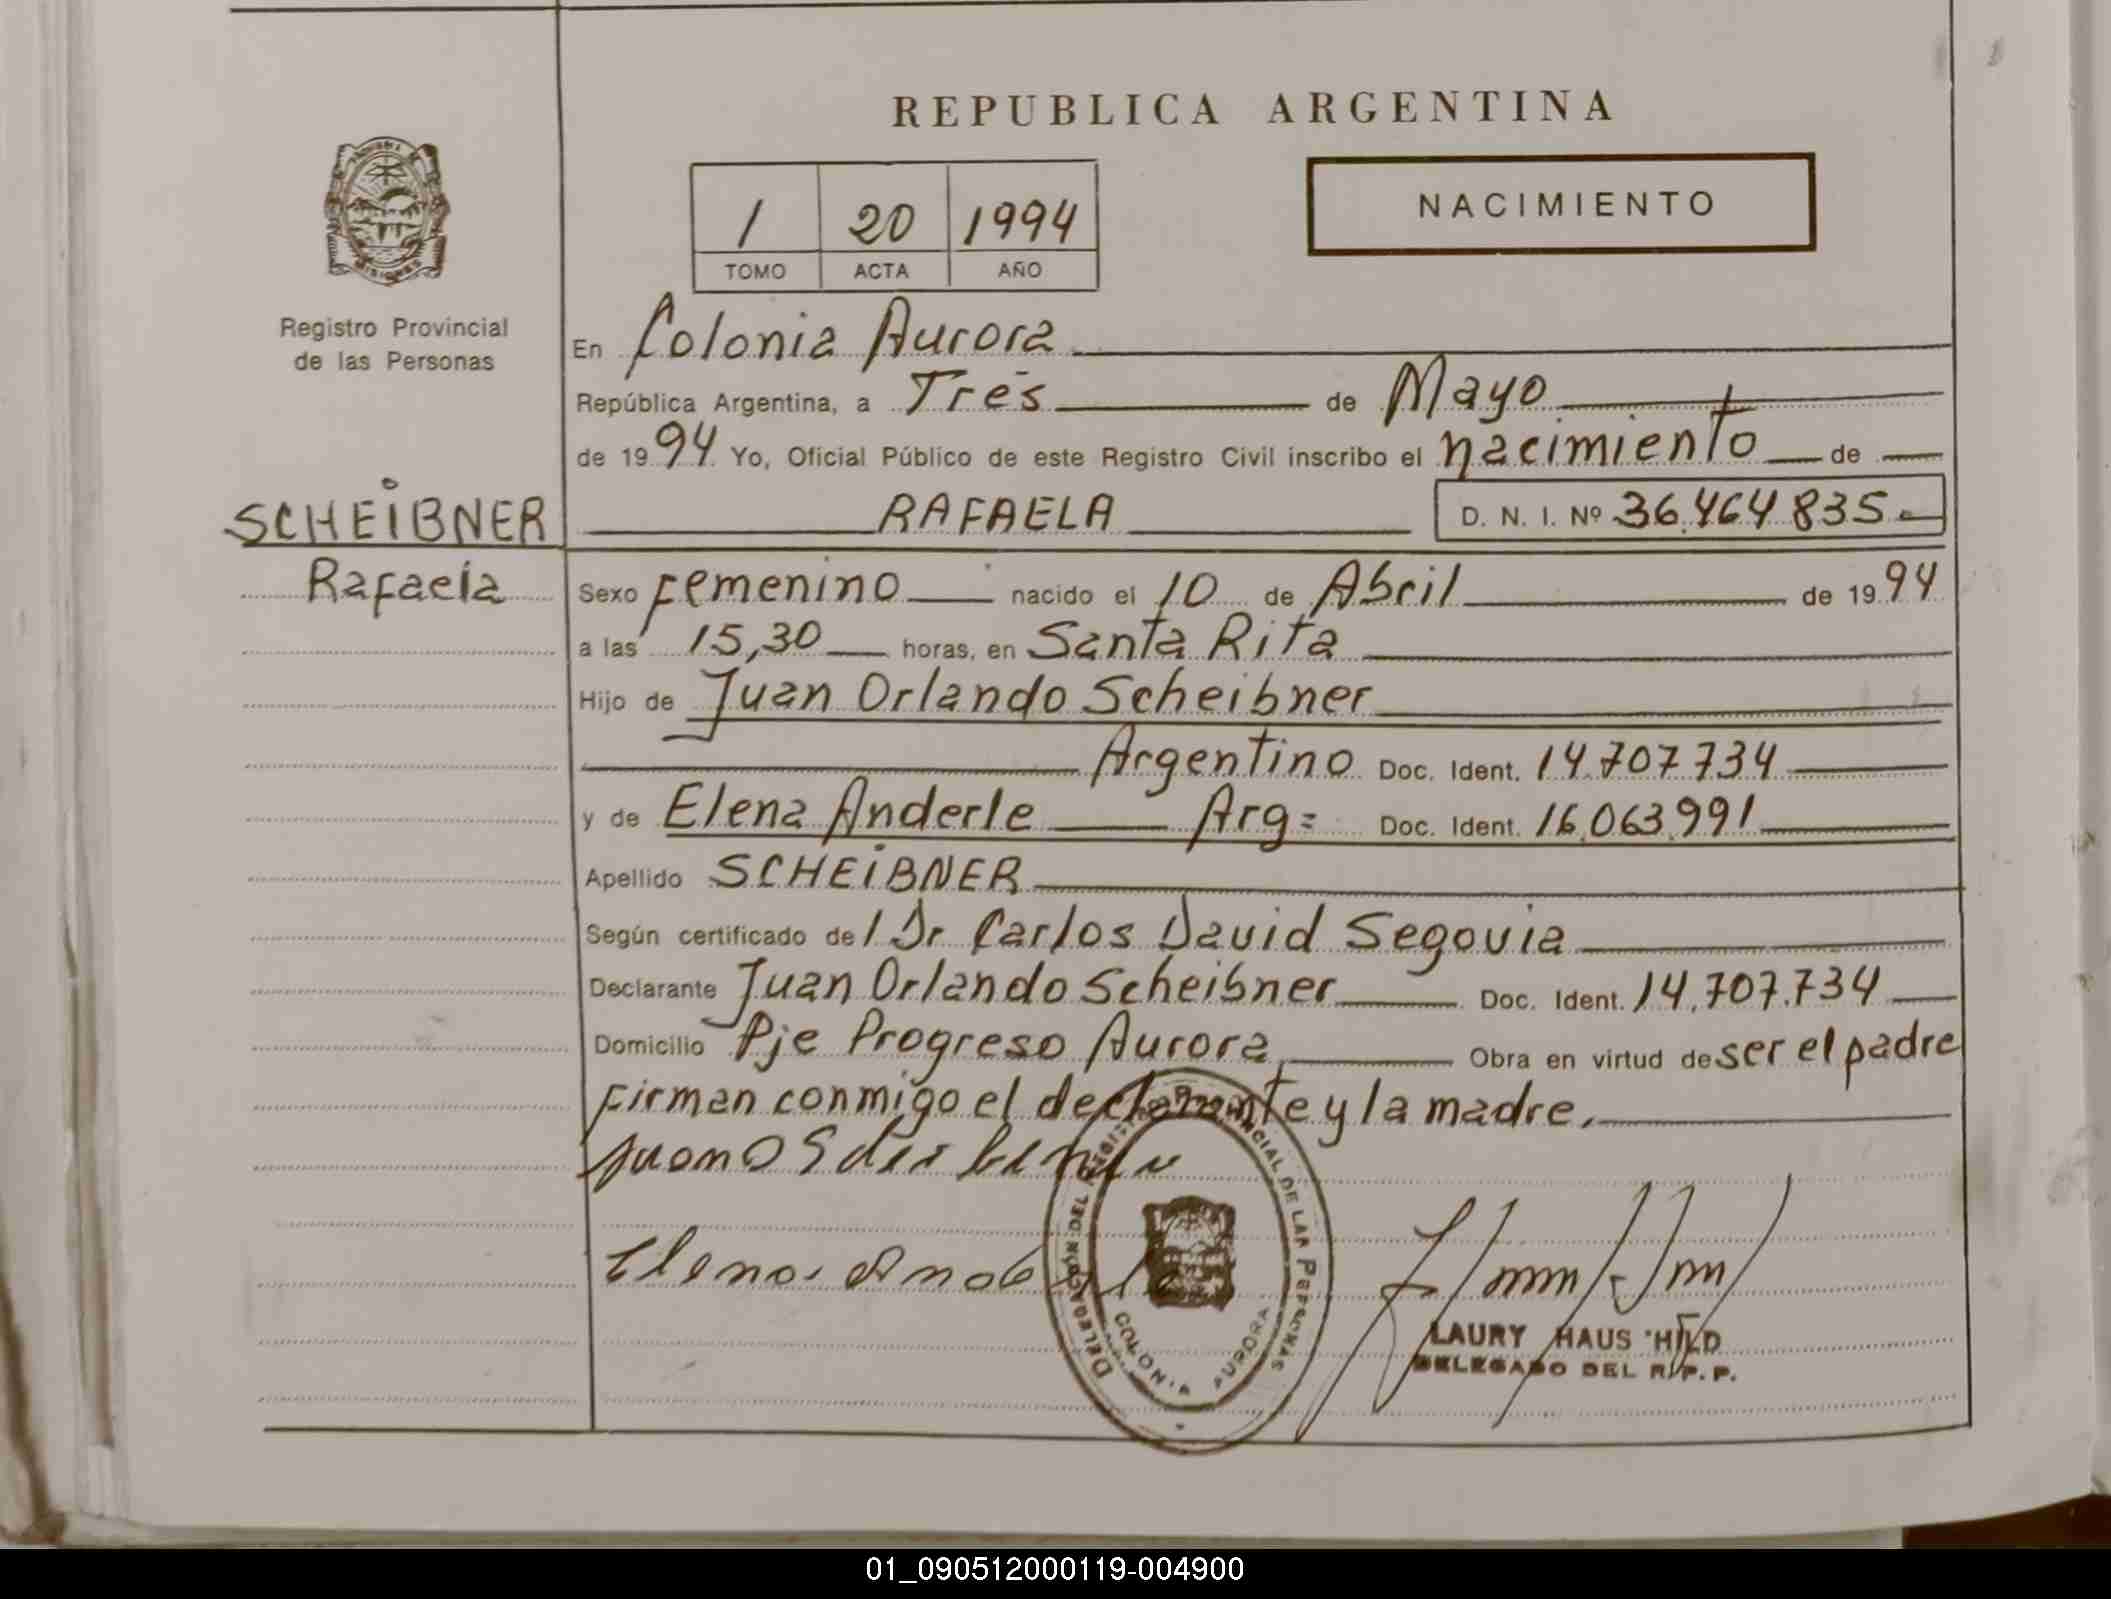 REPUBLICA ARGENTINA
NACIMIENTO
1 20 1994
TOMO ACTA AÑO
MISIONES
Registro Provincial
de las Personas
En Colonia Aurora
República Argentina, a Tres de Mayo
de 1994 Yo, Oficial Público de este Registro Civil inscribo el nacimiento de
SCHEiBNER
Rafaela
RAFAELA D. N. I. Nº 36.464.835.-
Sexo Femenino nacido el 10 de Abril de 1994
a las 15,30 horas, en Santa Rita
Hijo de Juan Orlando Scheibner
Argentino Doc. Ident. 14.707.734
y de Elena Anderle Arg= Doc. Ident. 16.063.991
Apellido SCHEiBNER
Según certificado del Dr Carlos David Segovia
Declarante Juan Orlando Scheibner Doc. Ident. 14.707.734
Domicilio Pje Progreso Aurora Obra en virtud de ser el padre
Firman conmigo el declarante y la madre.
Juan O Scheibner
Elena Anderle
DELEGACIÓN DEL REGISTRO PROVINCIAL DE LAS PERSONAS
COLONIA AURORA
LAURY HAUS HILD
DELEGADO DEL R.P.P.
01_090512000119-004900